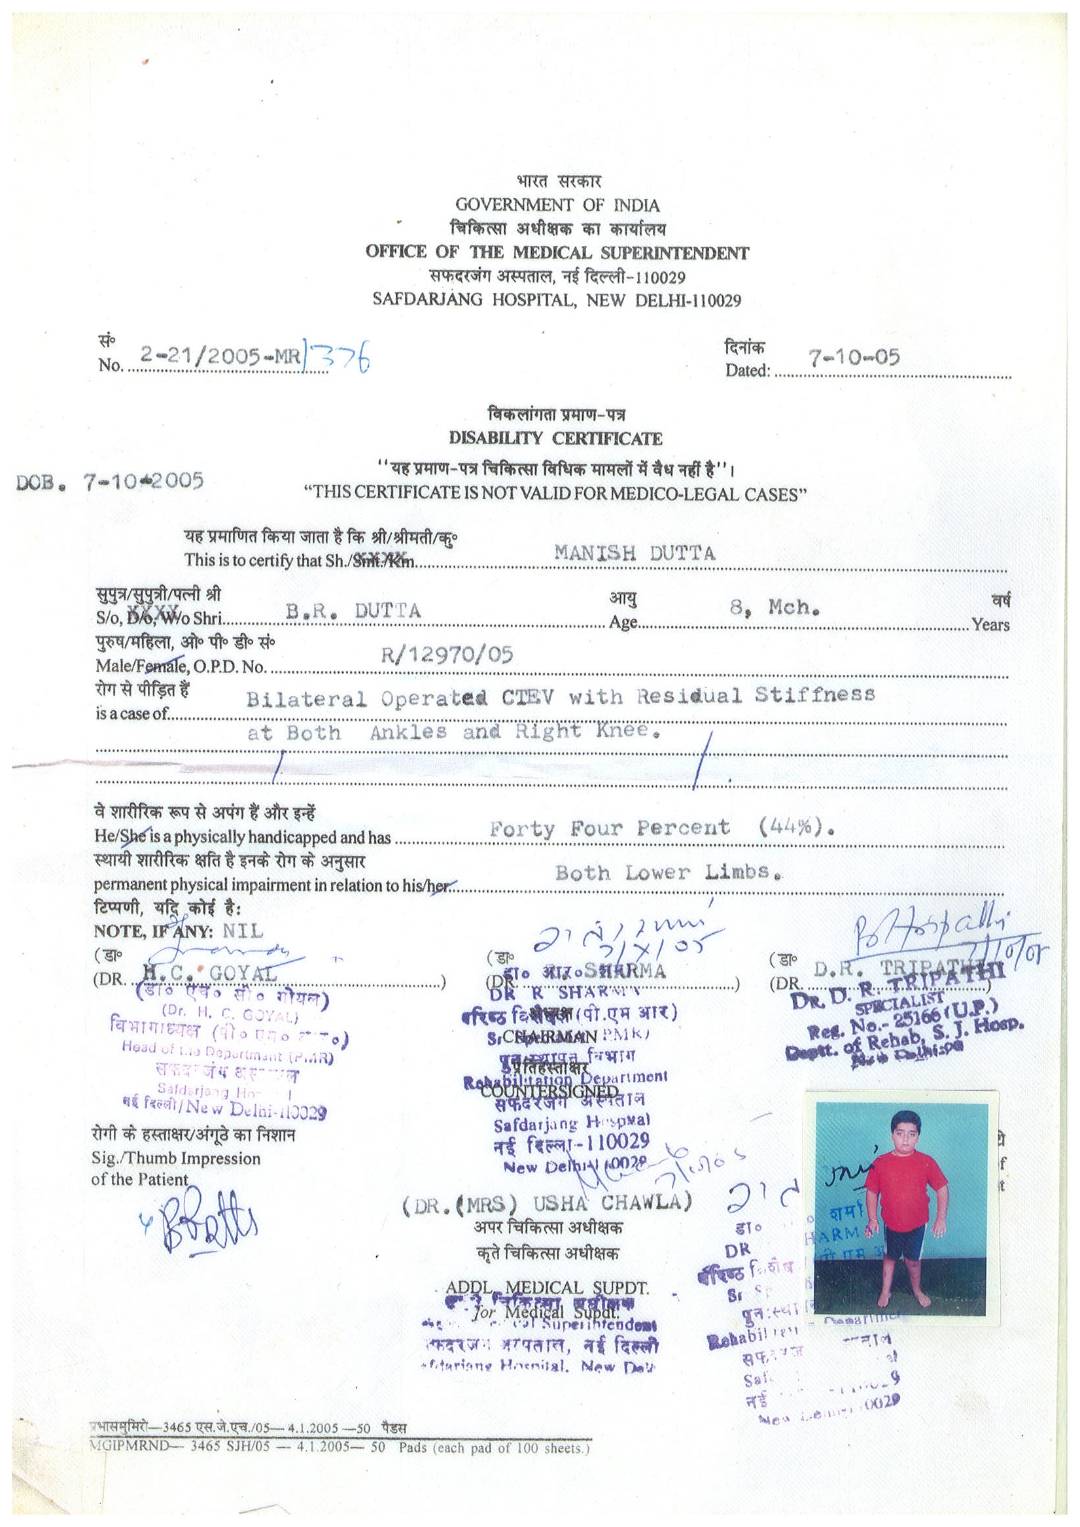 भारत सरकार
GOVERNMENT OF INDIA
चिकित्सा अधीक्षक का कार्यालय
OFFICE OF THE MEDICAL SUPERINTENDENT
सफदरजंग अस्पताल, नई दिल्ली-110029
SAFDARJANG HOSPITAL, NEW DELHI-110029
सं०
No. 2-21/2005-MR/376
दिनांक
Dated: 7-10-05
विकलांगता प्रमाण-पत्र
DISABILITY CERTIFICATE
DOB. 7-10-2005
''यह प्रमाण-पत्र चिकित्सा विधिक मामलों में वैध नहीं है''।
“THIS CERTIFICATE IS NOT VALID FOR MEDICO-LEGAL CASES”
यह प्रमाणित किया जाता है कि श्री/श्रीमती/कु०
This is to certify that Sh./Smt./Km. MANISH DUTTA
सुपुत्र/सुपुत्री/पत्नी श्री आयु वर्ष
S/o, D/o, W/o Shri B.R. DUTTA Age 8, Mch. Years
पुरुष/महिला, ओ० पी० डी० सं०
Male/Female, O.P.D. No. R/12970/05
रोग से पीड़ित हैं
is a case of Bilateral Operated CTEV with Residual Stiffness
at Both Ankles and Right Knee.
वे शारीरिक रूप से अपंग हैं और इन्हें
He/She is a physically handicapped and has Forty Four Percent (44%).
स्थायी शारीरिक क्षति है इनके रोग के अनुसार
permanent physical impairment in relation to his/her Both Lower Limbs.
टिप्पणी, यदि कोई है:
NOTE, IF ANY: NIL
7/X/05
(डा० (डा० (डा०
(DR. H.C. GOYAL) (DR. R. SHARMA) (DR. D.R. TRIPATHI)
(डा० एच० सी० गोयल)
(Dr. H. C. GOYAL)
विभागाध्यक्ष
Head of the Department (PMR)
सफदरजंग अस्पताल
Safdarjang
नई दिल्ली/New Delhi-110029
डा० आर० शर्मा
DR R SHARMA
वरिष्ठ विशेषज्ञ (पी.एम आर)
अध्यक्ष
CHAIRMAN
पुनःस्थापन विभाग
प्रतिहस्ताक्षर
Rehabilitation Department
COUNTERSIGNED
सफदरजंग अस्पताल
Safdarjang Hospital
नई दिल्ली-110029
New Delhi-110029
DR. D. R. TRIPATHI
SPECIALIST
Reg. No.- 25166 (U.P.)
Deptt. of Rehab, S. J. Hosp.
New Delhi-29
रोगी के हस्ताक्षर/अंगूठे का निशान
Sig./Thumb Impression
of the Patient
(DR.(MRS) USHA CHAWLA)
अपर चिकित्सा अधीक्षक
कृते चिकित्सा अधीक्षक
ADDL. MEDICAL SUPDT.
for Medical Supdt.
चिकित्सा अधीक्षक
Superintendent
सफदरजंग अस्पताल, नई दिल्ली
Safdarjang Hospital, New Delhi
डा० शर्मा
DR SHARMA
वरिष्ठ
Sr
Department
नई
New Delhi
प्रभासमुमिरो—3465 एस.जे.एच./05— 4.1.2005 —50 पैडस
MGIPMRND— 3465 SJH/05 — 4.1.2005— 50 Pads (each pad of 100 sheets.)